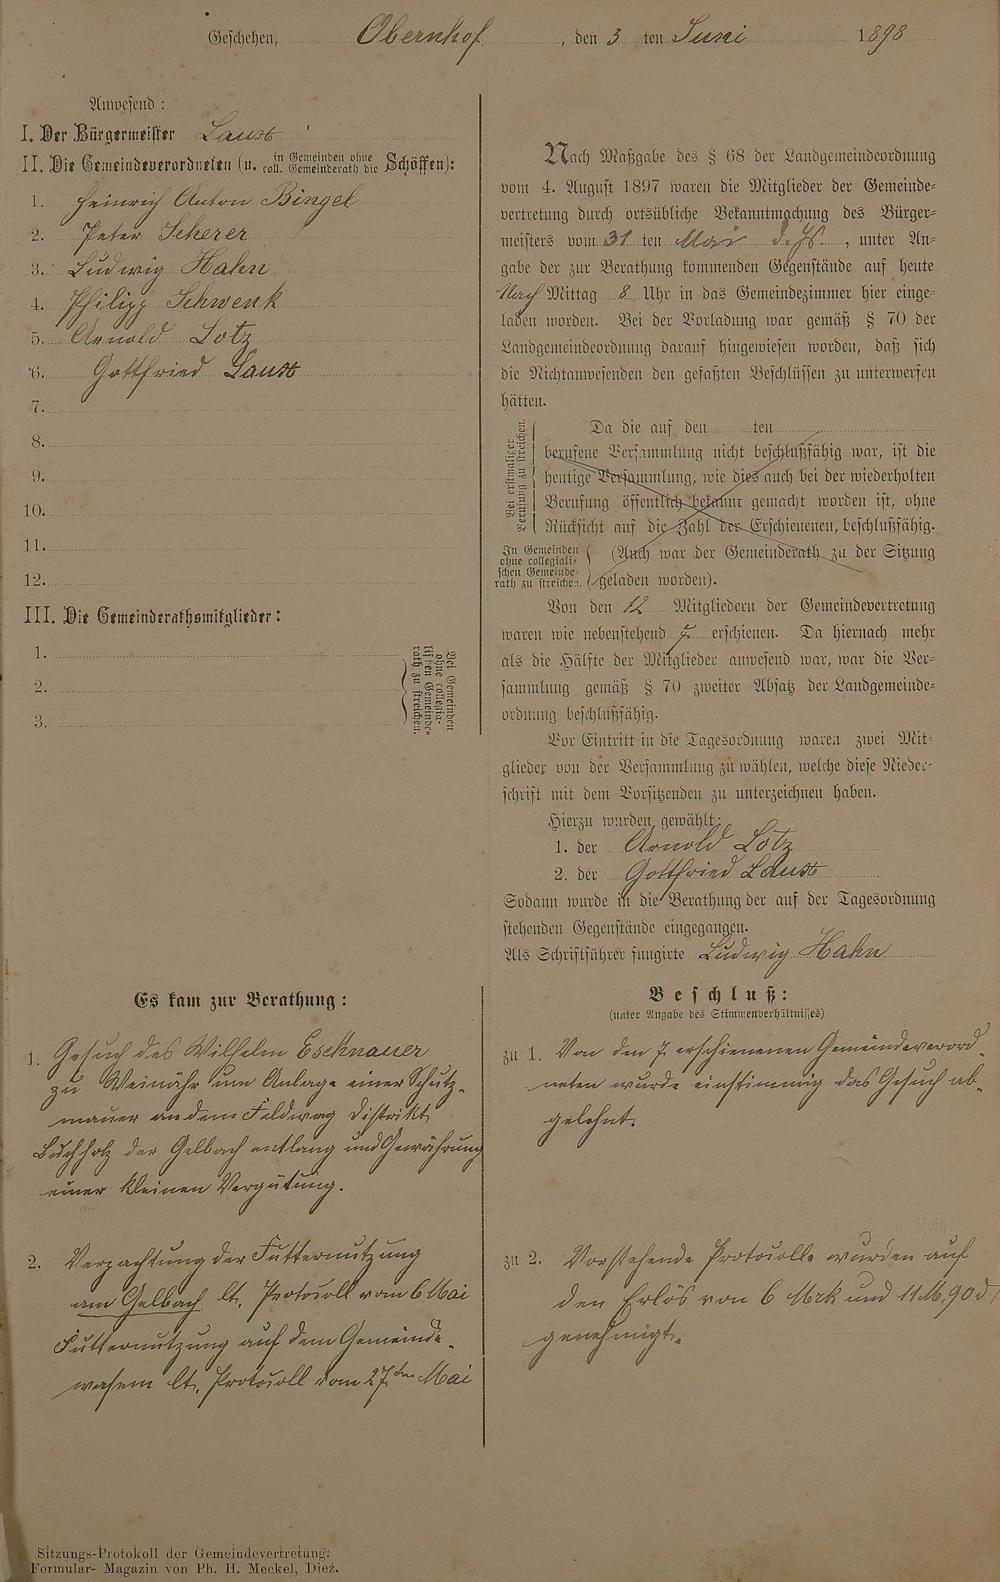 Geschehen, Obernhof, den 3 ten Juni 1898
Anwesend:
I. Der Bürgermeister Laux
II. Die Gemeindeverordneten (u. in Gemeinden ohne coll. Gemeinderath die Schöffen):
1. Heinrich Anton Bingel
2. Peter Scherer
3. Ludwig Hahn
4. Philipp Schwenk
5. Arnold Lotz
6. Gottfried Laux
7.
8.
9.
10.
11.
12.
III. Die Gemeinderathsmitglieder:
1.
2.
3.
Bei Gemeinden
ohne collegia-
lischen Gemeinde-
rath zu streichen.
Nach Maßgabe des § 68 der Landgemeindeordnung
vom 4. August 1897 waren die Mitglieder der Gemeinde-
vertretung durch ortsübliche Bekanntmachung des Bürger-
meisters vom 31 ten Mai d. Js., unter An-
gabe der zur Berathung kommenden Gegenstände auf heute
Nach Mittag 8 Uhr in das Gemeindezimmer hier einge-
laden worden. Bei der Vorladung war gemäß § 70 der
Landgemeindeordnung darauf hingewiesen worden, daß sich
die Nichtanwesenden den gefaßten Beschlüssen zu unterwerfen
hätten.
Bei erstmaliger
Berufung zu streichen.
Da die auf den ten
berufene Versammlung nicht beschlußfähig war, ist die
heutige Versammlung, wie dies auch bei der wiederholten
Berufung öffentlich bekannt gemacht worden ist, ohne
Rücksicht auf die Zahl der Erschienenen, beschlußfähig.
In Gemeinden
ohne collegiali-
schen Gemeinde-
rath zu streichen.
(Auch war der Gemeinderath zu der Sitzung
geladen worden).
Von den 12 Mitgliedern der Gemeindevertretung
waren wie nebenstehend 7 erschienen. Da hiernach mehr
als die Hälfte der Mitglieder anwesend war, war die Ver-
sammlung gemäß § 70 zweiter Absatz der Landgemeinde-
ordnung beschlußfähig.
Vor Eintritt in die Tagesordnung waren zwei Mit-
glieder von der Versammlung zu wählen, welche diese Nieder-
schrift mit dem Vorsitzenden zu unterzeichnen haben.
Hierzu wurden gewählt:
1. der Arnold Lotz
2. der Gottfried Laux
Sodann wurde in die Berathung der auf der Tagesordnung
stehenden Gegenstände eingegangen.
Als Schriftführer fungirte Ludwig Hahn
Es kam zur Berathung:
1. Gesuch des Wilhelm Eschnauer
zu Weinähr um Anlage einer Schutz-
mauer an dem Feldweg Distrikt
Buchholz der Gelbach entlang und Gewährung
einer kleinen Vergütung.
2. Verpachtung der Futternutzung
am Gelbach lt. Protocoll vom 6 Mai
Futternutzung auf dem Gemeinde-
wasem lt. Protocoll vom 27ten Mai
Beschluß:
(unter Angabe des Stimmenverhältnisses)
zu 1. Von den 7 erschienenen Gemeindeverord-
neten wurde einstimmig das Gesuch ab-
gelehnt.
zu 2. Vorstehende Protocolle wurden auf
den Erlös von 6 Mrk und 11 M. 90 d
genehmigt.
Sitzungs-Protokoll der Gemeindevertretung:
Formular-Magazin von Ph. H. Meckel, Diez.